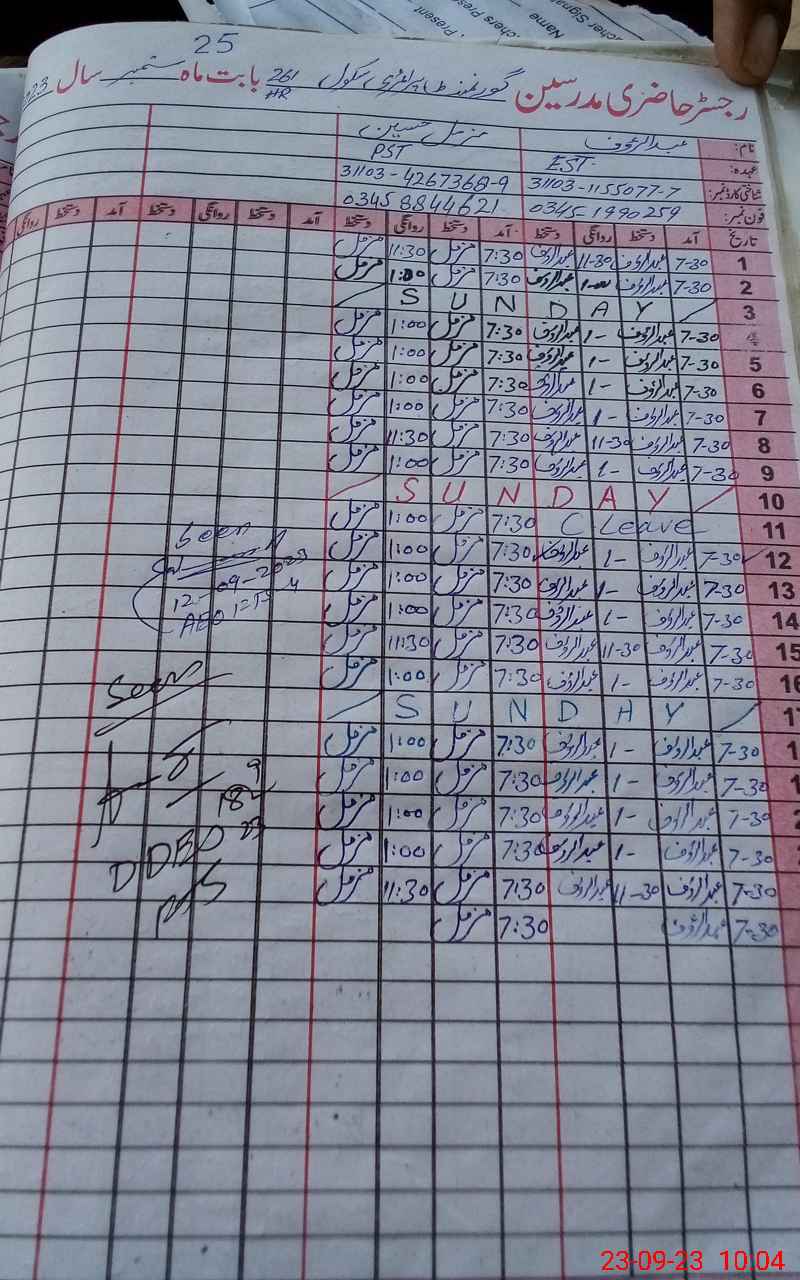 25
رجسٹر حاضری مدرسین گورنمنٹ پرائمری سکول 261 HR بابت ماہ ستمبر سال 2023
نام: عبدالرؤف مزمل حسین
عہدہ: EST. PST
شناختی کارڈ نمبر: 31103-1155077-7 31103-4267368-9
فون نمبر: 0345-1990259 0345 8844621
تاریخ آمد دستخط روانگی دستخط آمد دستخط روانگی دستخط آمد دستخط روانگی دستخط آمد دستخط روانگی
1 7-30 عبدالرؤف 11-30 عبدالرؤف 7:30 مزمل 11:30 مزمل
2 7-30 عبدالرؤف 1-00 عبدالرؤف 7:30 مزمل 1:00 مزمل
3 S U N D A Y
4 7-30 عبدالرؤف 1- عبدالرؤف 7:30 مزمل 1:00 مزمل
5 7-30 عبدالرؤف 1- عبدالرؤف 7:30 مزمل 1:00 مزمل
6 7-30 عبدالرؤف 1- عبدالرؤف 7:30 مزمل 1:00 مزمل
7 7-30 عبدالرؤف 1- عبدالرؤف 7:30 مزمل 1:00 مزمل
8 7-30 عبدالرؤف 11-30 عبدالرؤف 7:30 مزمل 11:30 مزمل
9 7-30 عبدالرؤف 1- عبدالرؤف 7:30 مزمل 1:00 مزمل
10 S U N D A Y
11 C Leave 7:30 مزمل 1:00 مزمل
12 7-30 عبدالرؤف 1- عبدالرؤف 7:30 مزمل 1:00 مزمل
13 7-30 عبدالرؤف 1- عبدالرؤف 7:30 مزمل 1:00 مزمل
14 7-30 عبدالرؤف 1- عبدالرؤف 7:30 مزمل 1:00 مزمل
15 7-30 عبدالرؤف 11-30 عبدالرؤف 7:30 مزمل 11:30 مزمل
16 7-30 عبدالرؤف 1- عبدالرؤف 7:30 مزمل 1:00 مزمل
1 S U N D A Y
1 7-30 عبدالرؤف 1- عبدالرؤف 7:30 مزمل 1:00 مزمل
1 7-30 عبدالرؤف 1- عبدالرؤف 7:30 مزمل 1:00 مزمل
7-30 عبدالرؤف 1- عبدالرؤف 7:30 مزمل 1:00 مزمل
7-30 عبدالرؤف 1- عبدالرؤف 7:30 مزمل 1:00 مزمل
7-30 عبدالرؤف 11-30 عبدالرؤف 7:30 مزمل 11:30 مزمل
7-30 عبدالرؤف 7:30 مزمل
Seen
12-09-2023
AEO
Seen
DDEO
23-09-23 10:04